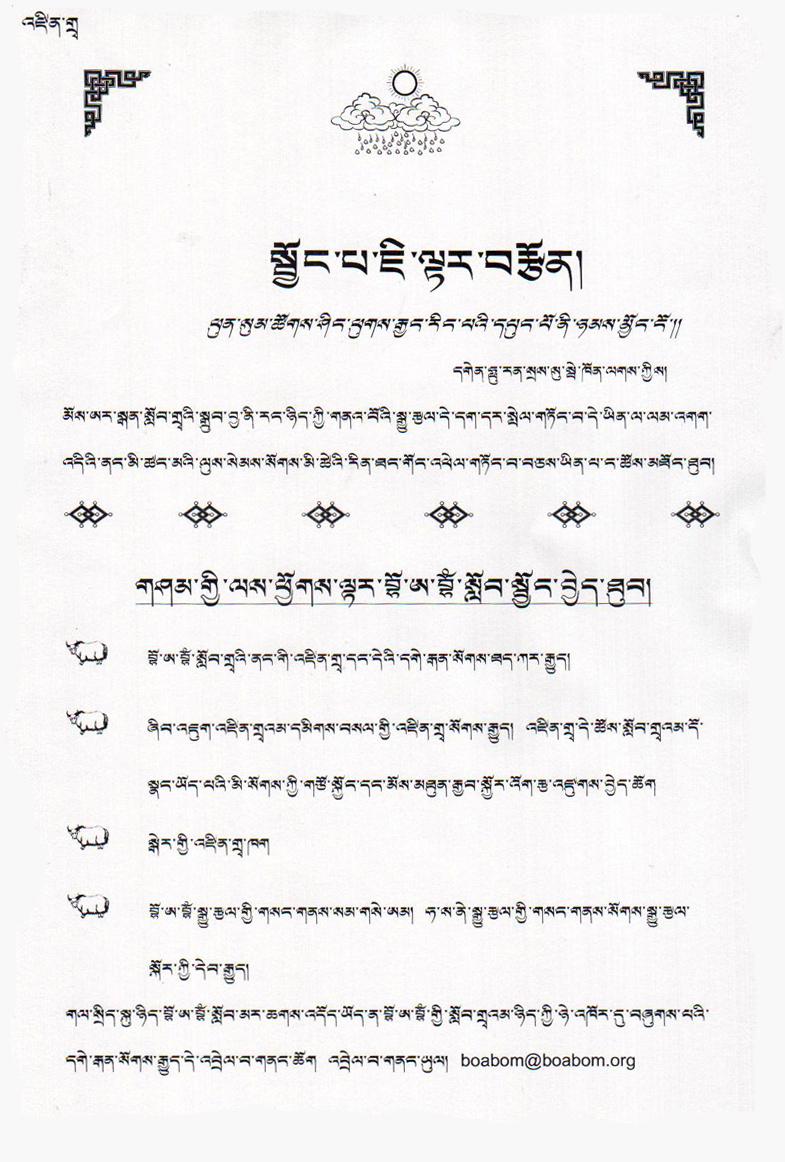 འཛིན་གྲྭ
སྦྱོང་པ་ཇི་ལྟར་བརྩོན།
ཕུན་སུམ་ཚོགས་ཤིང་ཕུགས་རྒྱང་རིང་པའི་དཔུང་པོ་ནི་ཉམས་མྱོང་ངོ་།།
དགེན་ཨྰ་རན་སྲས་སུ་སྡེ་ཁོན་ལགས་ཀྱིས།
མོས་ཨར་སྨན་སློབ་གྲྭའི་སྒྲུབ་བྱ་ནི་རང་ཉིད་ཀྱི་གནའ་བོའི་སྒྱུ་རྩལ་དེ་དག་དར་སྤེལ་གཏོང་བ་དེ་ཡིན་ལ་ལམ་འགག་
འདིའི་ནང་མི་ཚང་མའི་ལུས་སེམས་སོགས་མི་ཚེའི་རིན་ཐང་གོང་འཕེལ་གཏོང་བ་བཅས་ཡིན་པ་ང་ཚོས་མཐོང་ཐུབ།
གཤམ་གྱི་ལས་ཕྱོགས་ལྟར་བྷོ་ཨ་བྷོཾ་སློབ་སྦྱོང་བྱེད་ཐུབ།
བྷོ་ཨ་བྷོཾ་སློབ་གྲྭའི་ནང་གི་འཛིན་གྲྭ་དང་དེའི་དགེ་རྒན་སོགས་ཐད་ཀར་རྒྱུད།
ཞིབ་འཇུག་འཛིན་གྲྭའམ་དམིགས་བསལ་གྱི་འཛིན་གྲྭ་སོགས་རྒྱུད། འཛིན་གྲྭ་དེ་ཚོས་སློབ་གྲྭའམ་དོ་
སྣང་ཡོད་པའི་མི་སོགས་ཀྱི་གཙོ་སྐྱོང་དང་མོས་མཐུན་རྒྱབ་སྐྱོར་འོག་ཆ་འཛུགས་བྱེད་ཆོག
སྒེར་གྱི་འཛིན་གྲྭ་ཁག
བྷོ་ཨ་བྷོཾ་སྒྱུ་རྩལ་གྱི་གསང་གནས་སམ་གསེ་ཨམ། ཧ་ས་ནེ་སྒྱུ་རྩལ་གྱི་གསང་གནས་སོགས་སྒྱུ་རྩལ་
སྐོར་ཀྱི་དེབ་རྒྱུད།
གལ་སྲིད་སྐུ་ཉིད་བྷོ་ཨ་བྷོཾ་སློབ་མར་ཆགས་འདོད་ཡོད་ན་བྷོ་ཨ་བྷོཾ་གྱི་སློབ་གྲྭའམ་ཉིད་ཀྱི་ཉེ་འཁོར་དུ་བཞུགས་པའི་
དགེ་རྒན་སོགས་རྒྱུད་དེ་འབྲེལ་བ་གནང་ཆོག འབྲེལ་བ་གནང་ཡུལ། boabom@boabom.org